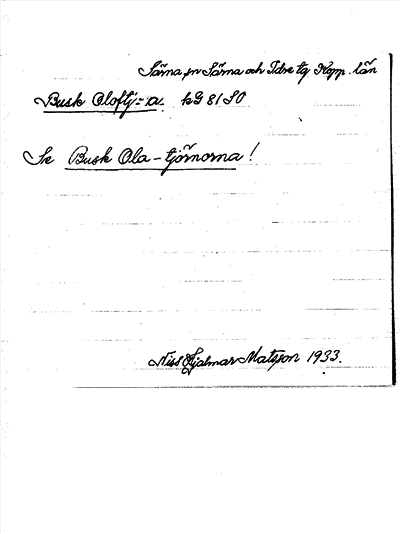 Särna sn Särna och Idre tg Kopp. län
Busk Oloftj=a. kG 81 SO
Se Busk Ola-tjörnorna!
Niss Hjalmar Matsson 1933.